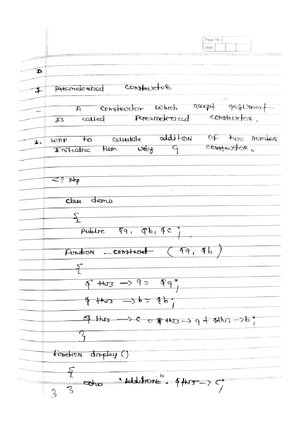 Page No.
Date
Parameterized constructor
- A constructor which accept argument
is called Parameterized constructor.
1. WAP to calculate addition of two number
Initialize them using a constructor.
<? php
class demo
{
Public $a, $b, $c ;
function __construct ( $a, $b )
{
$this -> a = $a ;
$this -> b = $b ;
$this -> c = $this -> a + $this -> b ;
}
function display ()
{
echo "Addition:" . $this -> c ;
} }